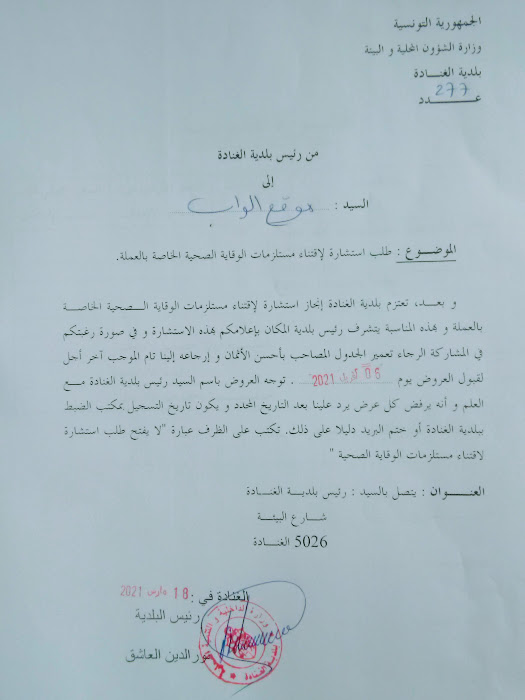 الجمهورية التونسية
وزارة الشؤون المحلية و البيئة
بلدية الغنـــادة
عـــــــدد 277
من رئيس بلدية الغنادة
إلى
السيد : موقع الواب
الموضـــوع : طلب استشارة لإقتناء مستلزمات الوقاية الصحية الخاصة بالعملة.
و بعـــد، تعتزم بلدية الغنادة إنجاز استشارة لإقتناء مستلزمات الوقاية الـــصحية الخاصـــة
بالعملة و بهذه المناسبة يتشرف رئيس بلدية المكان بإعلامكم بهذه الاستشارة و في صورة رغبتكم
في المشاركة الرجاء تعمير الجدول المصاحب بأحسن الأثمان و إرجاعه إلينا تام الموجب آخر أجل
لقبول العروض يوم 06 أفريل 2021 . توجه العروض باسم السيد رئيس بلدية الغنادة مـــع
العلم و أنه يرفض كل عرض يرد علينا بعد التاريخ المحدد و يكون تاريخ التسجيل بمكتب الضبط
ببلدية الغنادة أو ختم البريد دليلا على ذلك. تكتب على الظرف عبارة "لا يفتح طلب استشارة
لاقتناء مستلزمات الوقاية الصحية "
العنـــوان : يتصل بالسيد : رئيس بلديـــة الغنـــادة
شـــارع البيئـــة
5026 الغنـــادة
الغنادة في : 18 مارس 2021
رئيس البلدية
نور الدين العاشق